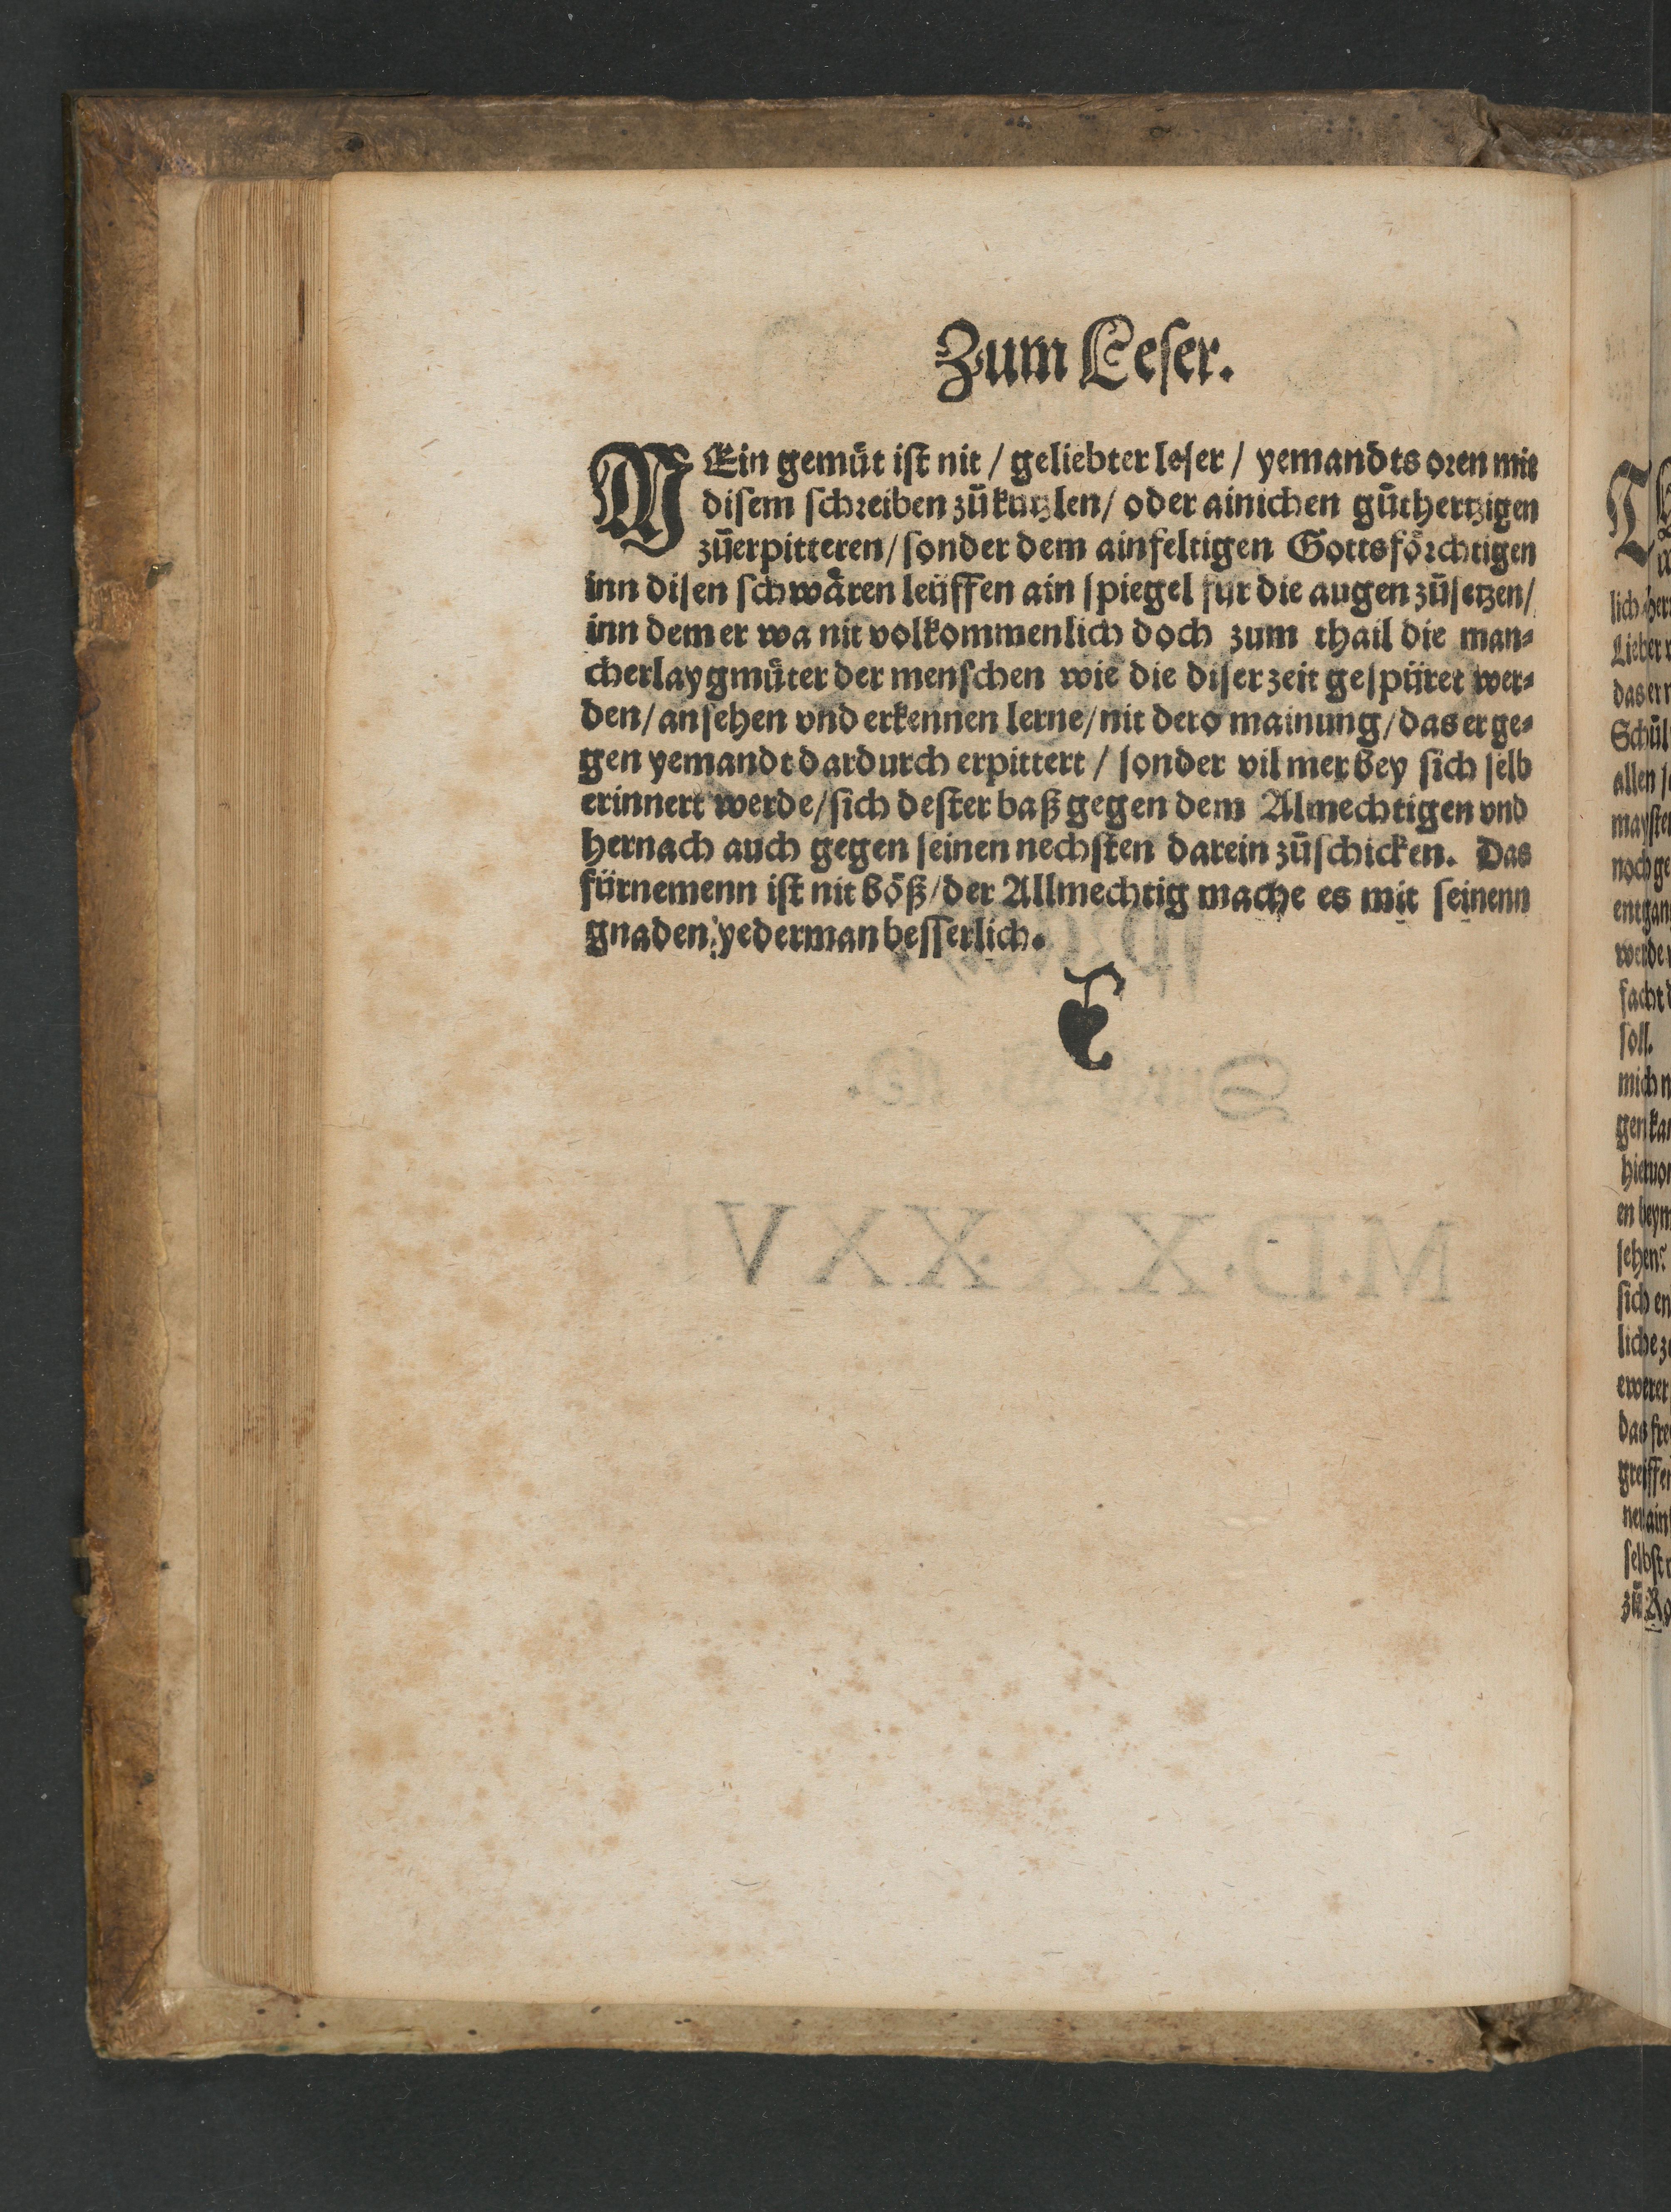 Zum Leser.
MEin gemuͤt ist nit / geliebter leser / yemandts oren mit
disem schreiben zuͦ kutzlen / oder ainichen guͦthertzigen
zuͦerpitteren / sonder dem ainfeltigen Gottsfoͤrchtigen
inn disen schwaͤren leüffen ain spiegel fur die augen zuͦ setzen /
inn dem er wa nit volkommenlich doch zum thail die man⸗
cherlay gmuͤter der menschen wie die diser zeit gespüret wer⸗
den / ansehen vnd erkennen lerne / nit dero mainung / das er ge⸗
gen yemandt dardurch erpittert / sonder vil mer bey sich selb
erinnert werde / sich dester baß gegen dem Almechtigen vnd
hernach auch gegen seinen nechsten darein zuͦschicken. Das
fürnemenn ist nit böß / der Allmechtig mache es mit seinenn
gnaden yederman besserlich.
lich
Lieber
das er
Schuͦl
allen
noch ge
soll.
mich
sehen?
sich en
ewerer